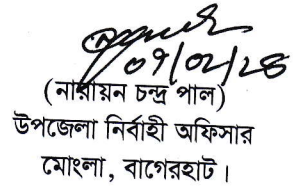 ০৭/০২/২৪
(নারায়ন চন্দ্র পাল)
উপজেলা নির্বাহী অফিসার
মোংলা, বাগেরহাট।